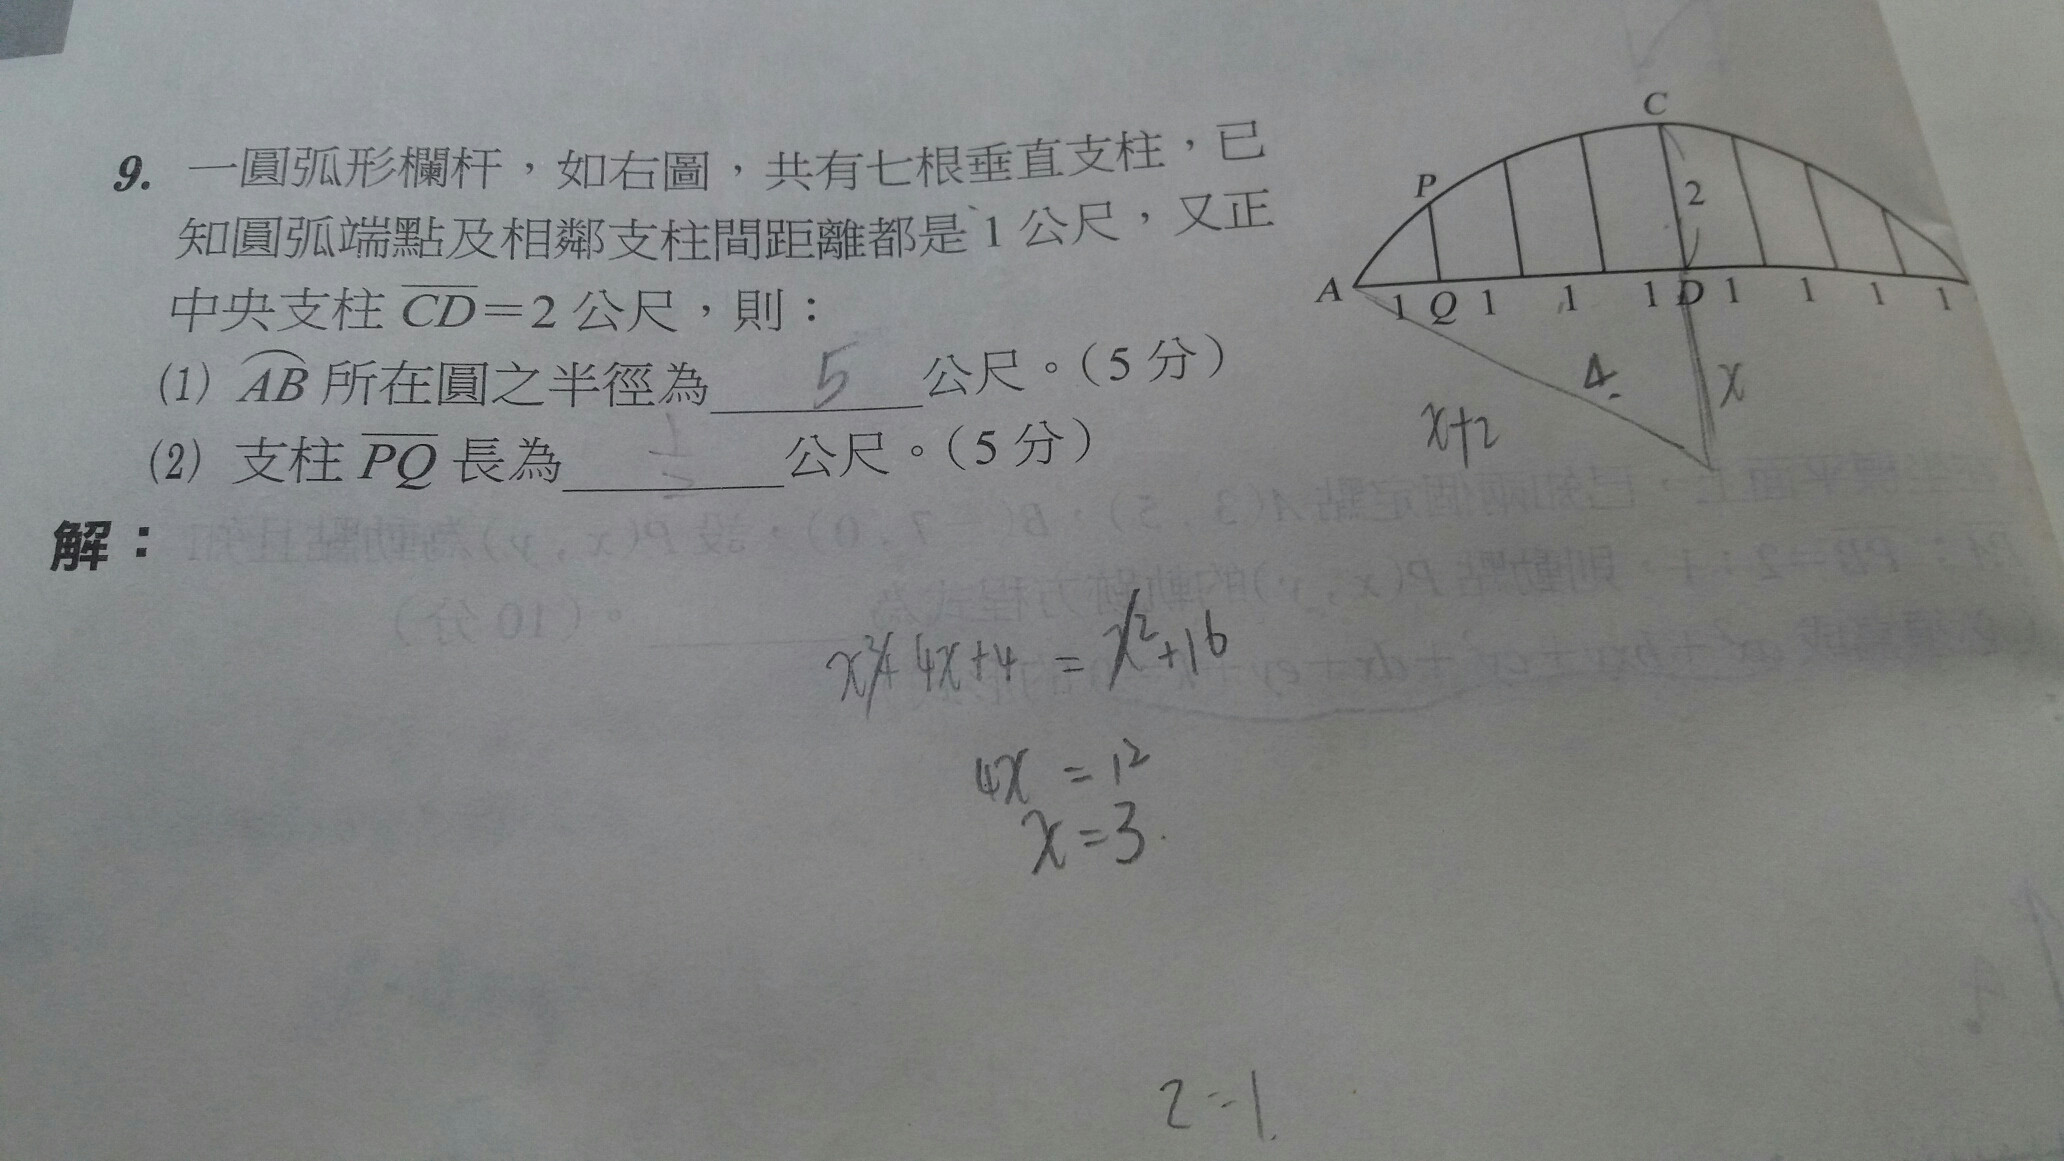 9. 一圓弧形欄杆，如右圖，共有七根垂直支柱，已
知圓弧端點及相鄰支柱間距離都是 1 公尺，又正
中央支柱 CD=2 公尺，則：
(1) AB 所在圓之半徑為 5 公尺。(5 分)
(2) 支柱 PQ 長為 公尺。(5 分)
解：
C
P
2
A 1 Q 1 1 1 D 1 1 1 1
4
x
x+2
x²+4x+4 = x²+16
4x = 12
x=3.
2 = 1